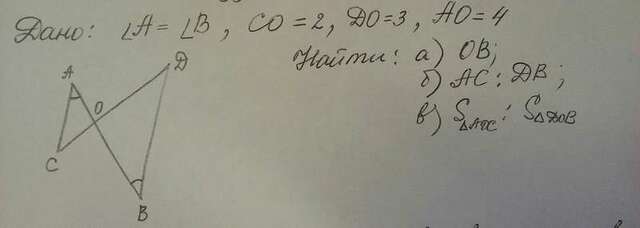 Дано: ∠A = ∠B, CO = 2, DO = 3, AO = 4
Найти: а) OB;
б) AC : DB;
в) S△AOC : S△DOB
A
D
O
C
B